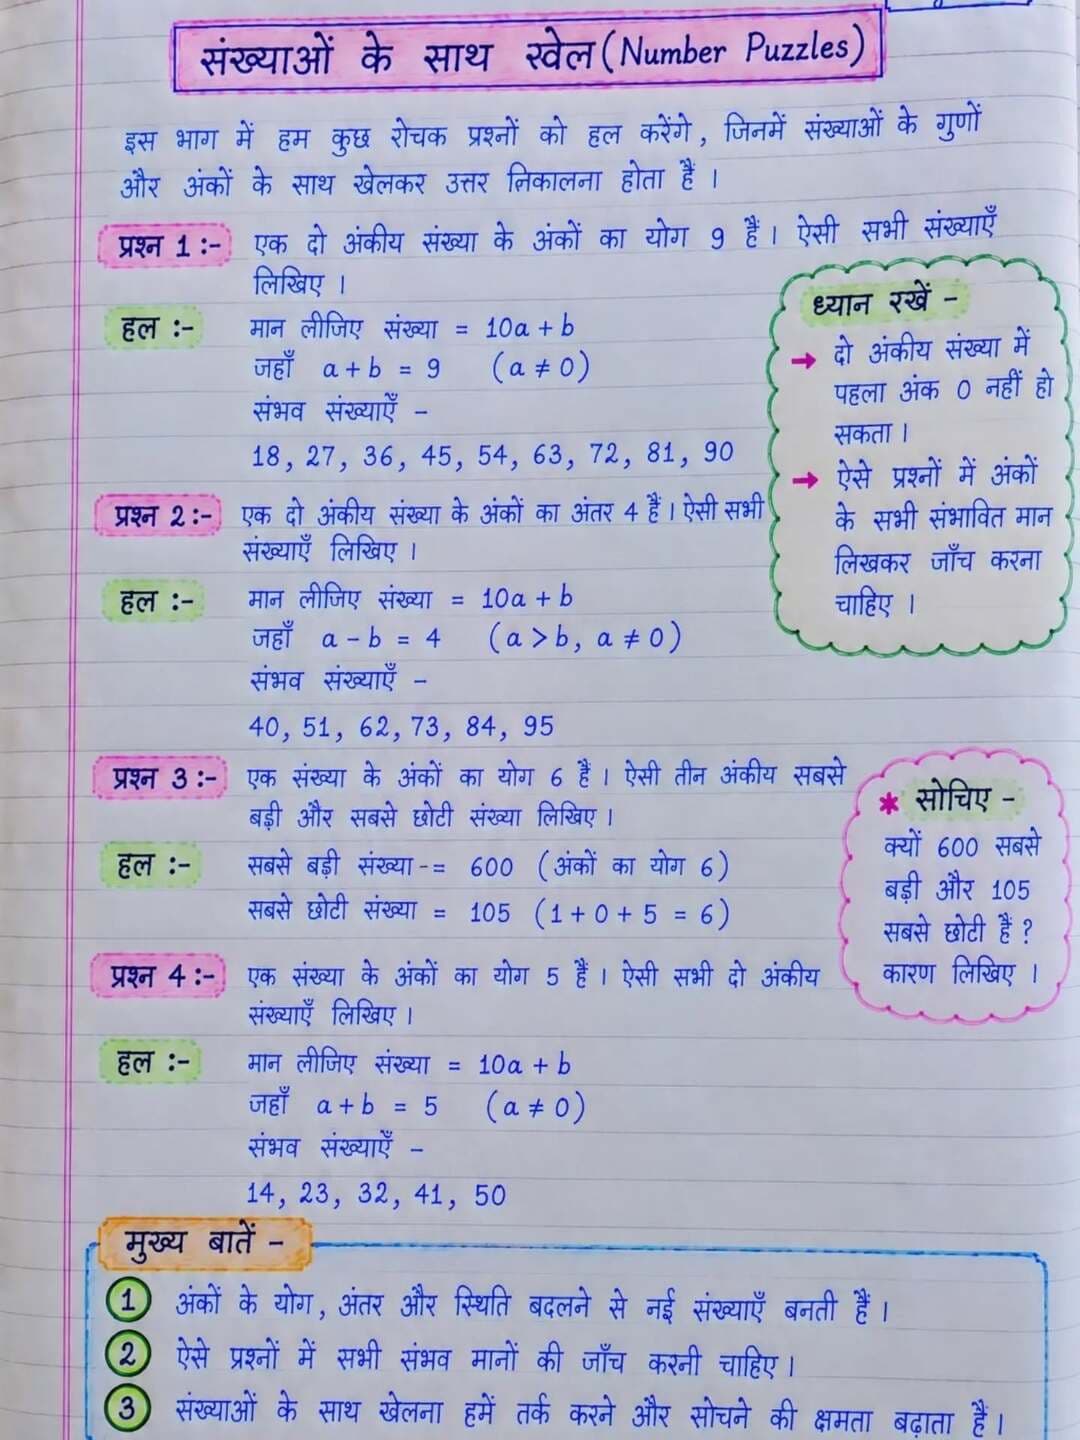 संख्याओं के साथ खेल (Number Puzzles)
इस भाग में हम कुछ रोचक प्रश्नों को हल करेंगे, जिनमें संख्याओं के गुणों
और अंकों के साथ खेलकर उत्तर निकालना होता है ।
प्रश्न 1 :- एक दो अंकीय संख्या के अंकों का योग 9 है । ऐसी सभी संख्याएँ
लिखिए ।
हल :- मान लीजिए संख्या = 10a + b
जहाँ a + b = 9 (a ≠ 0)
संभव संख्याएँ -
18, 27, 36, 45, 54, 63, 72, 81, 90
ध्यान रखें -
→ दो अंकीय संख्या में
पहला अंक 0 नहीं हो
सकता ।
→ ऐसे प्रश्नों में अंकों
के सभी संभावित मान
लिखकर जाँच करना
चाहिए ।
प्रश्न 2 :- एक दो अंकीय संख्या के अंकों का अंतर 4 है । ऐसी सभी
संख्याएँ लिखिए ।
हल :- मान लीजिए संख्या = 10a + b
जहाँ a - b = 4 (a > b, a ≠ 0)
संभव संख्याएँ -
40, 51, 62, 73, 84, 95
प्रश्न 3 :- एक संख्या के अंकों का योग 6 है । ऐसी तीन अंकीय सबसे
बड़ी और सबसे छोटी संख्या लिखिए ।
हल :- सबसे बड़ी संख्या -= 600 (अंकों का योग 6)
सबसे छोटी संख्या = 105 (1 + 0 + 5 = 6)
* सोचिए -
क्यों 600 सबसे
बड़ी और 105
सबसे छोटी है ?
कारण लिखिए ।
प्रश्न 4 :- एक संख्या के अंकों का योग 5 है । ऐसी सभी दो अंकीय
संख्याएँ लिखिए ।
हल :- मान लीजिए संख्या = 10a + b
जहाँ a + b = 5 (a ≠ 0)
संभव संख्याएँ -
14, 23, 32, 41, 50
मुख्य बातें -
1 अंकों के योग, अंतर और स्थिति बदलने से नई संख्याएँ बनती हैं ।
2 ऐसे प्रश्नों में सभी संभव मानों की जाँच करनी चाहिए ।
3 संख्याओं के साथ खेलना हमें तर्क करने और सोचने की क्षमता बढ़ाता है ।